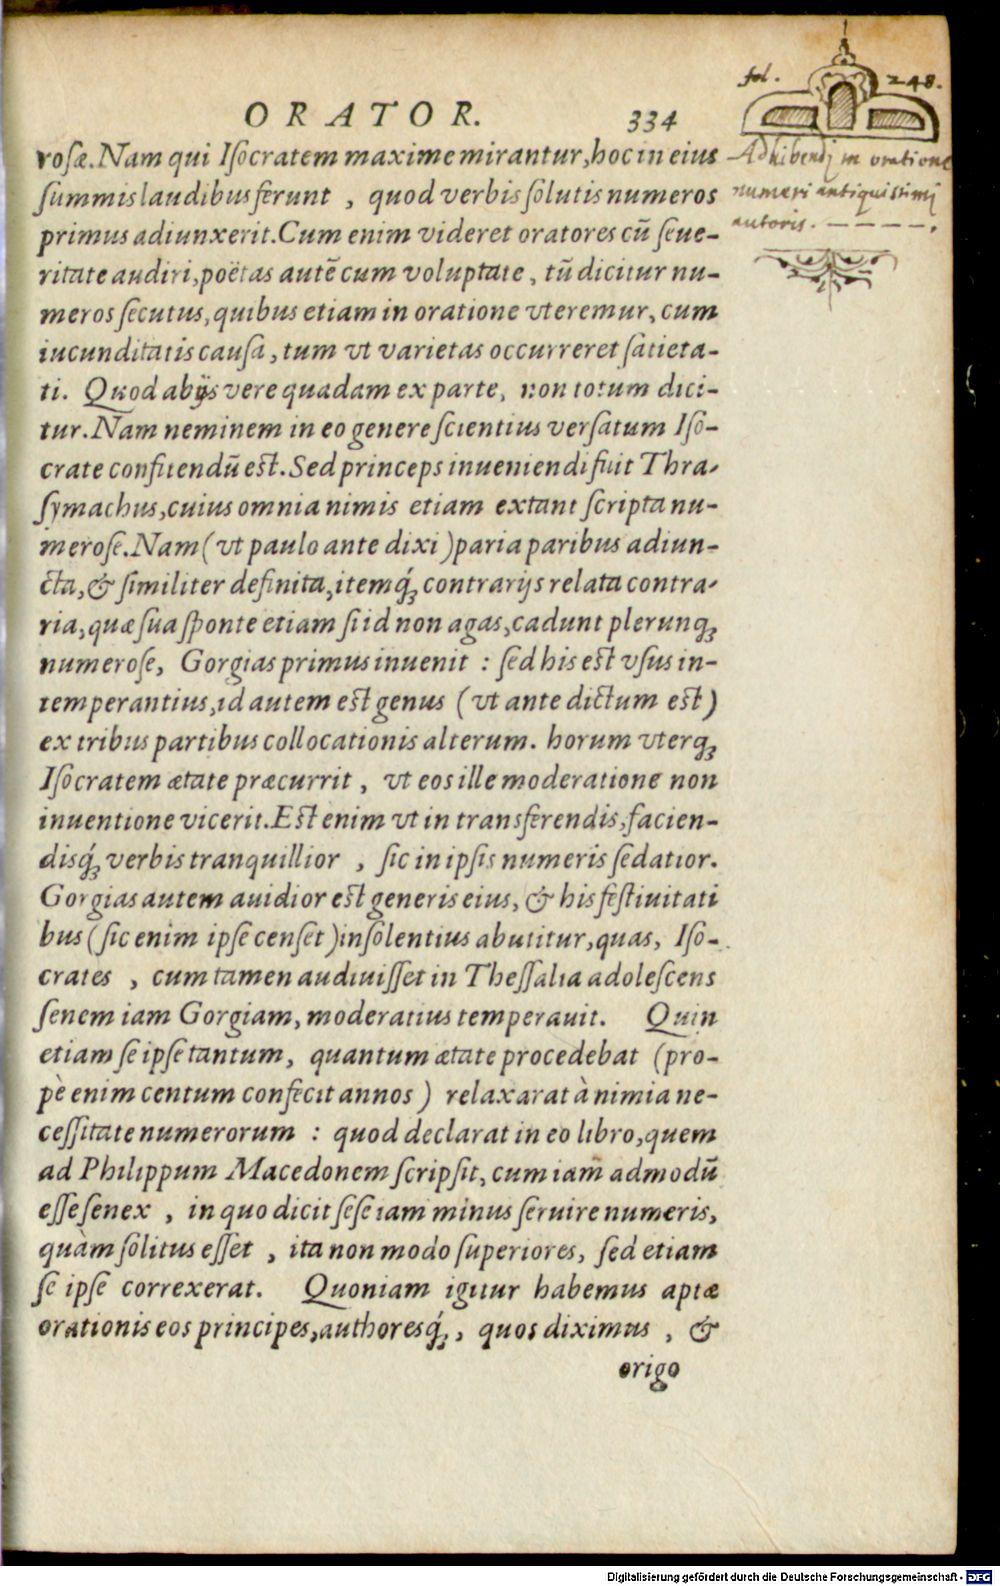 ORATOR. 334
fol. 248.
rosæ. Nam qui Isocratem maxime mirantur, hoc in eius
summis laudibus ferunt, quod verbis solutis numeros
primus adiunxerit. Cum enim videret oratores cū seue-
ritate audiri, poëtas autē cum voluptate, tū dicitur nu-
meros secutus, quibus etiam in oratione vteremur, cum
iucunditatis causa, tum vt varietas occurreret satieta-
ti. Quod ab ijs vere quadam ex parte, non totum dici-
tur. Nam neminem in eo genere scientius versatum Iso-
crate confitendū est. Sed princeps inueniendi fuit Thra-
symachus, cuius omnia nimis etiam extant scripta nu-
merose. Nam (vt paulo ante dixi) paria paribus adiun-
cta, & similiter definita, itemq́; contrarijs relata contra-
ria, quæ sua sponte etiam si id non agas, cadunt plerunq;
numerose, Gorgias primus inuenit : sed his est vsus in-
temperantius, id autem est genus (vt ante dictum est)
ex tribus partibus collocationis alterum. horum vterq;
Isocratem ætate præcurrit, vt eos ille moderatione non
inuentione vicerit. Est enim vt in transferendis, facien-
disq́; verbis tranquillior, sic in ipsis numeris sedatior.
Gorgias autem auidior est generis eius, & his festiuitati
bus (sic enim ipse censet) insolentius abutitur, quas, Iso-
crates, cum tamen audiuisset in Thessalia adolescens
senem iam Gorgiam, moderatius temperauit. Quin
etiam se ipse tantum, quantum ætate procedebat (pro-
pè enim centum confecit annos) relaxarat à nimia ne-
cessitate numerorum : quod declarat in eo libro, quem
ad Philippum Macedonem scripsit, cum iam admodū
esse senex, in quo dicit sese iam minus seruire numeris,
quàm solitus esset, ita non modo superiores, sed etiam
se ipse correxerat. Quoniam igitur habemus aptæ
orationis eos principes, authoresq́;, quos diximus, &
origo
Adhibendj in oratione
numeri antiquissimj
autoris. – – – – .
Digitalisierung gefördert durch die Deutsche Forschungsgemeinschaft - DFG